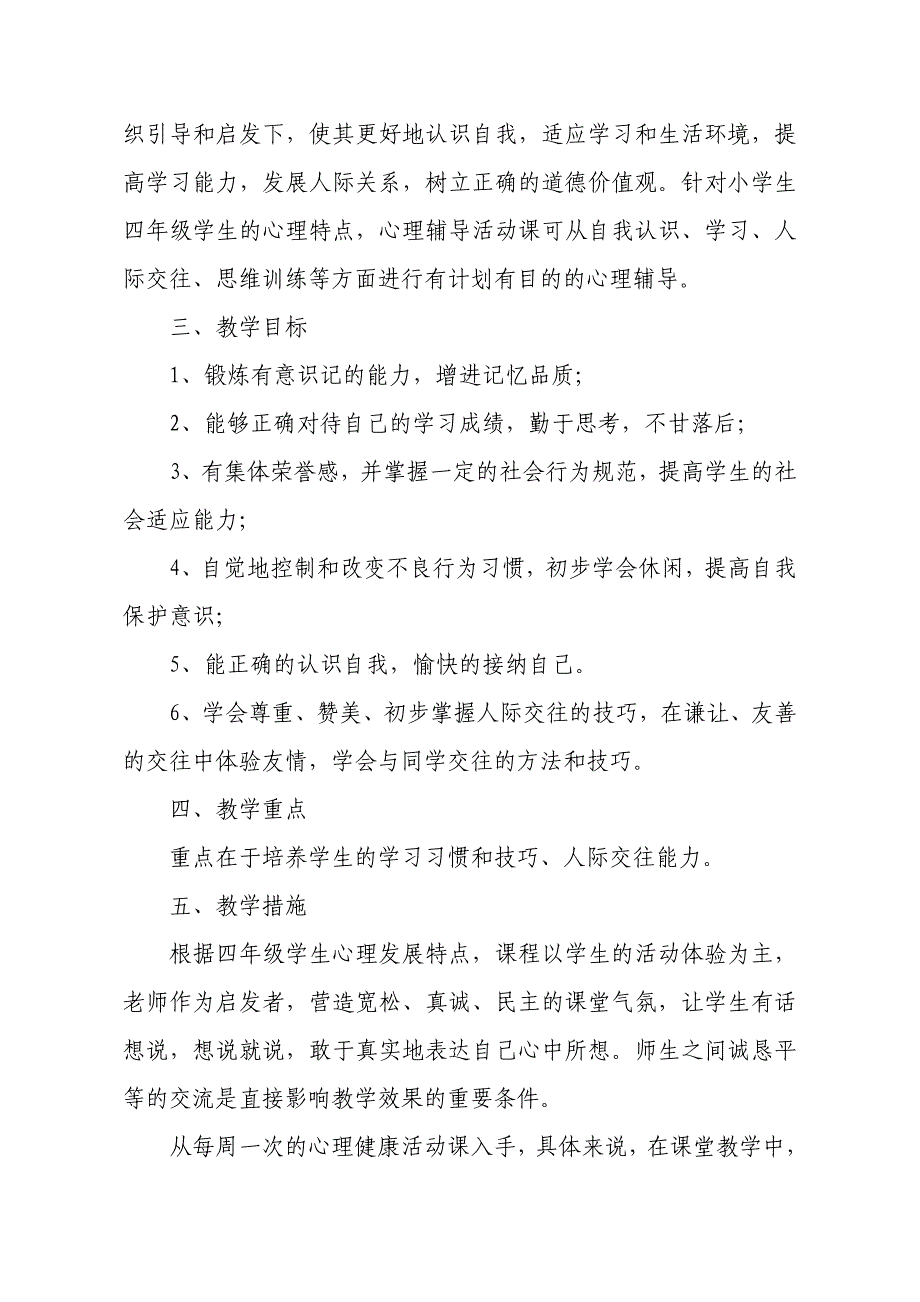 织引导和启发下，使其更好地认识自我，适应学习和生活环境，提
高学习能力，发展人际关系，树立正确的道德价值观。针对小学生
四年级学生的心理特点，心理辅导活动课可从自我认识、学习、人
际交往、思维训练等方面进行有计划有目的的心理辅导。
三、教学目标
1、锻炼有意识记的能力，增进记忆品质；
2、能够正确对待自己的学习成绩，勤于思考，不甘落后；
3、有集体荣誉感，并掌握一定的社会行为规范，提高学生的社
会适应能力；
4、自觉地控制和改变不良行为习惯，初步学会休闲，提高自我
保护意识；
5、能正确的认识自我，愉快的接纳自己。
6、学会尊重、赞美、初步掌握人际交往的技巧，在谦让、友善
的交往中体验友情，学会与同学交往的方法和技巧。
四、教学重点
重点在于培养学生的学习习惯和技巧、人际交往能力。
五、教学措施
根据四年级学生心理发展特点，课程以学生的活动体验为主，
老师作为启发者，营造宽松、真诚、民主的课堂气氛，让学生有话
想说，想说就说，敢于真实地表达自己心中所想。师生之间诚恳平
等的交流是直接影响教学效果的重要条件。
从每周一次的心理健康活动课入手，具体来说，在课堂教学中，